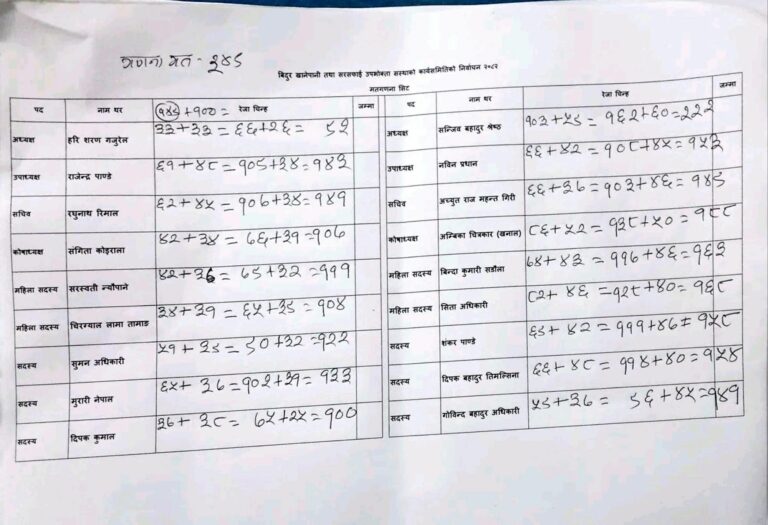 गणना मत - २४९
बिदुर खानेपानी तथा सरसफाई उपभोक्ता संस्थाको कार्यसमितिको निर्वाचन २०८२
मतगणना सिट
पद नाम थर रेजा चिन्ह जम्मा
१४९+१००=
अध्यक्ष हरि शरण गजुरेल ३३+३३=६६+२६= ९२
उपाध्यक्ष राजेन्द्र पाण्डे ६१+४८=१०९+३४=१४३
सचिव रघुनाथ रिमाल ६२+४५=१०७+३४=१४१
कोषाध्यक्ष संगिता कोइराला ४२+३४=७६+३१=१०७
महिला सदस्य सरस्वती न्यौपाने ४२+३७=७९+३२=१११
महिला सदस्य चिरग्याल लामा तामाङ ३४+३१=६५+३९=१०४
सदस्य सुमन अधिकारी ५१+३९=९०+३२=१२२
सदस्य मुरारी नेपाल ६५+३७=१०२+३१=१३३
सदस्य दिपक कुमाल ३७+३८=७५+२५=१००
पद नाम थर रेजा चिन्ह जम्मा
अध्यक्ष सन्जिव बहादुर श्रेष्ठ १०३+५९=१६२+६०=२२२
उपाध्यक्ष नविन प्रधान ६६+४२=१०८+४५=१५३
सचिव अच्युत राज महन्त गिरी ६६+३७=१०३+४६=१४९
कोषाध्यक्ष अम्बिका चित्रकार (खनाल) ८६+५२=१३८+५०=१८८
महिला सदस्य बिन्दा कुमारी सडौला ७४+४३=११७+४६=१६३
महिला सदस्य सिता अधिकारी ८२+४६=१२८+४०=१६८
सदस्य शंकर पाण्डे ६९+४२=१११+४७=१५८
सदस्य दिपक बहादुर तिमल्सिना ६६+४८=११४+४०=१५४
सदस्य गोविन्द बहादुर अधिकारी ५९+३७= ९६+४५=१४१